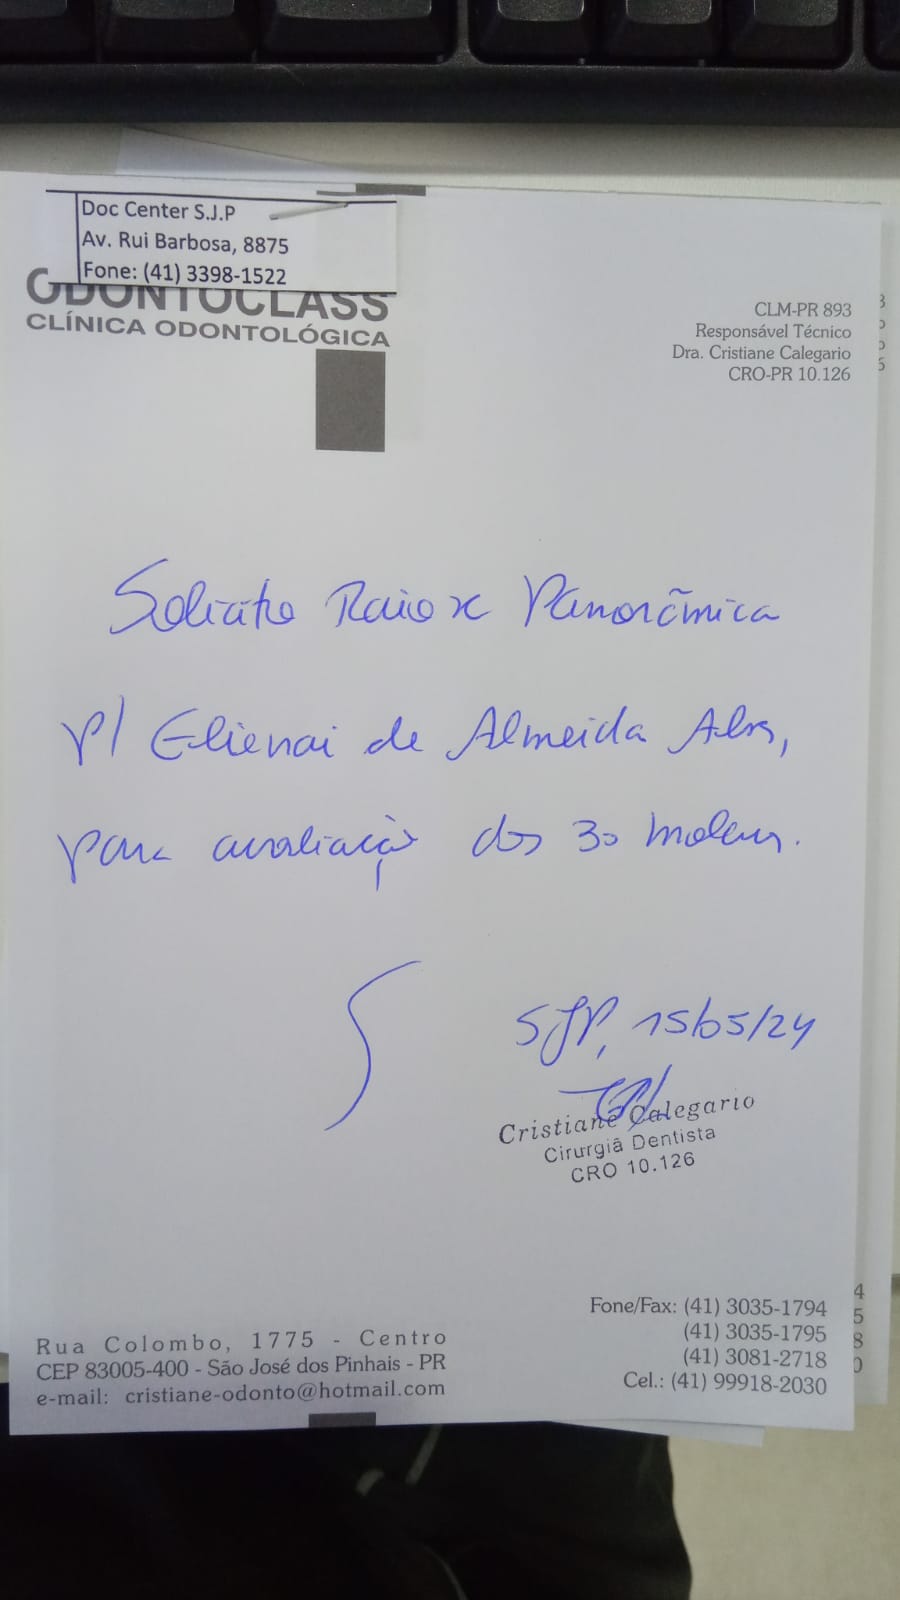 Doc Center S.J.P
Av. Rui Barbosa, 8875
Fone: (41) 3398-1522
ODONTOCLASS
CLÍNICA ODONTOLÓGICA
CLM-PR 893
Responsável Técnico
Dra. Cristiane Calegario
CRO-PR 10.126
Solicito Raio x Panorâmica
p/ Elienai de Almeida Alves,
para avaliação dos 3os molares.
SJP, 15/05/24
Cristiane Calegario
Cirurgiã Dentista
CRO 10.126
Rua Colombo, 1775 - Centro
CEP 83005-400 - São José dos Pinhais - PR
e-mail: cristiane-odonto@hotmail.com
Fone/Fax: (41) 3035-1794
(41) 3035-1795
(41) 3081-2718
Cel.: (41) 99918-2030